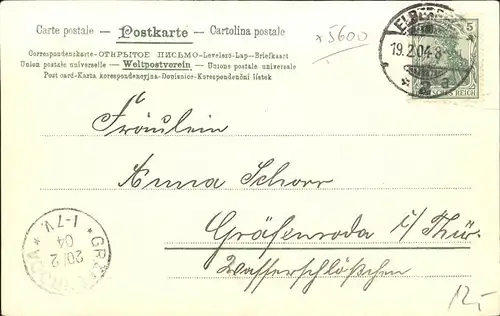 Carte postale – Postkarte – Cartolina postale
Correspondenzkarte–ОТКРЫТОЕ ПИСЬМО–Levelező-Lap–Briefkaart
Union postale universelle – Weltpostverein – Unione postale universale
Post card–Karta korespondencyjna–Dopisnice–Korespondenční lístek
x 5600
ELBERF
19.2.04.8
* 2 a
5
DEUTSCHES REICH
Fräulein
Anna Schorr
Gräfenroda i/Thür.
Wasserschlößchen
GRÄFENRODA
20/2
04
1-7V.
12.-